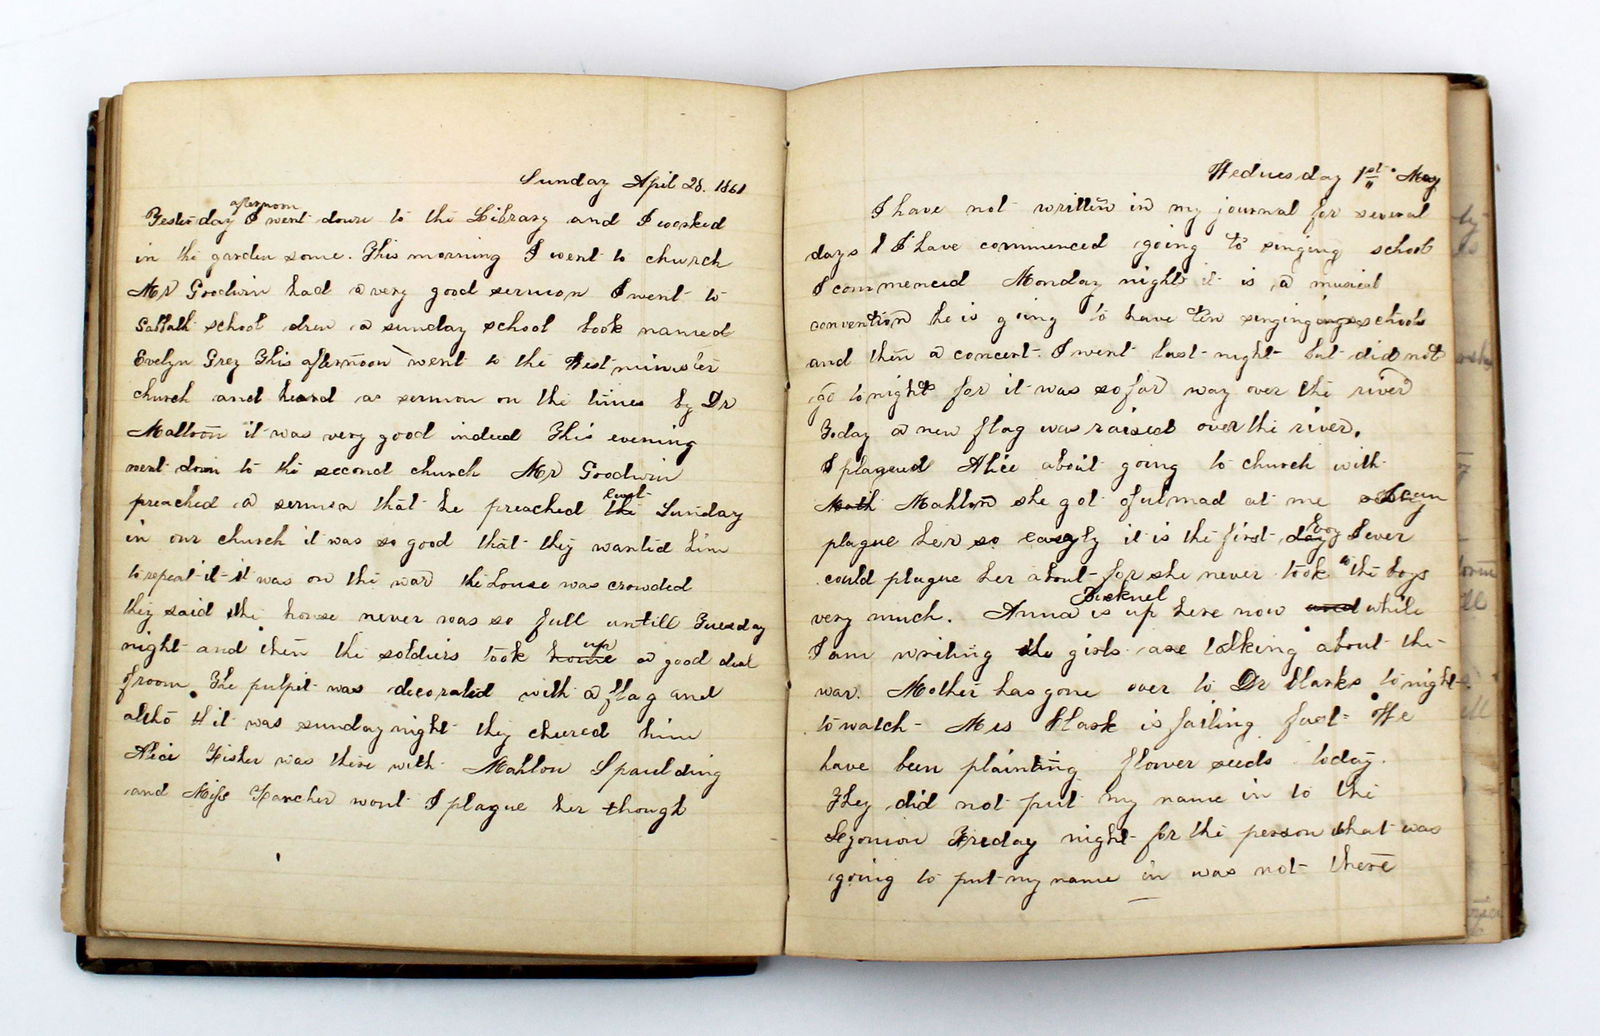 Sunday April 28. 1861
afternoon
Yesterday I went down to the Library and I worked
in the garden some. This morning I went to church
Mr Goodwin had a very good sermon I went to
Sabbath school drew a sunday school book named
Evelyn Grey This afternoon went to the Westminister
church and heard a sermon on the times by Dr
Maltoon it was very good indeed This evening
went down to the second church Mr Goodwin
preached a sermon that he preached the last Sunday
in our church it was so good that they wanted him
to repeat it it was on the war the house was crowded
they said the house never was so full untill Tuesday
night and then the soldiers took home up a good deal
of room. The pulpit was decorated with a flag and
altho it was sunday night they cheered him
Alice Fisher was there with Mahlon Spaulding
and Miss Hancher wont I plague her though
Wednesday 1st May
I have not written in my journal for several
days I have commenced going to singing school
I commenced Monday night it is a musical
convention he is going to have ten singing schools
and then a concert. I went last night but did not
go tonight for it was so far way over the river
Today a new flag was raised over the river.
I plagued Alice about going to church with
Mahlon she got oful mad at me I can
plague her so easyly it is the first boy I ever
could plague her about for she never took to the boys
very much. Anna Bicknel is up here now and while
I am writing the girls are talking about the
war. Mother has gone over to Dr Clarks tonight
to watch Mrs Clark is failing fast. We
have been plainting flower seeds today.
They did not put my name in to the
Segonion Friday night for the person that was
going to put my name in was not there